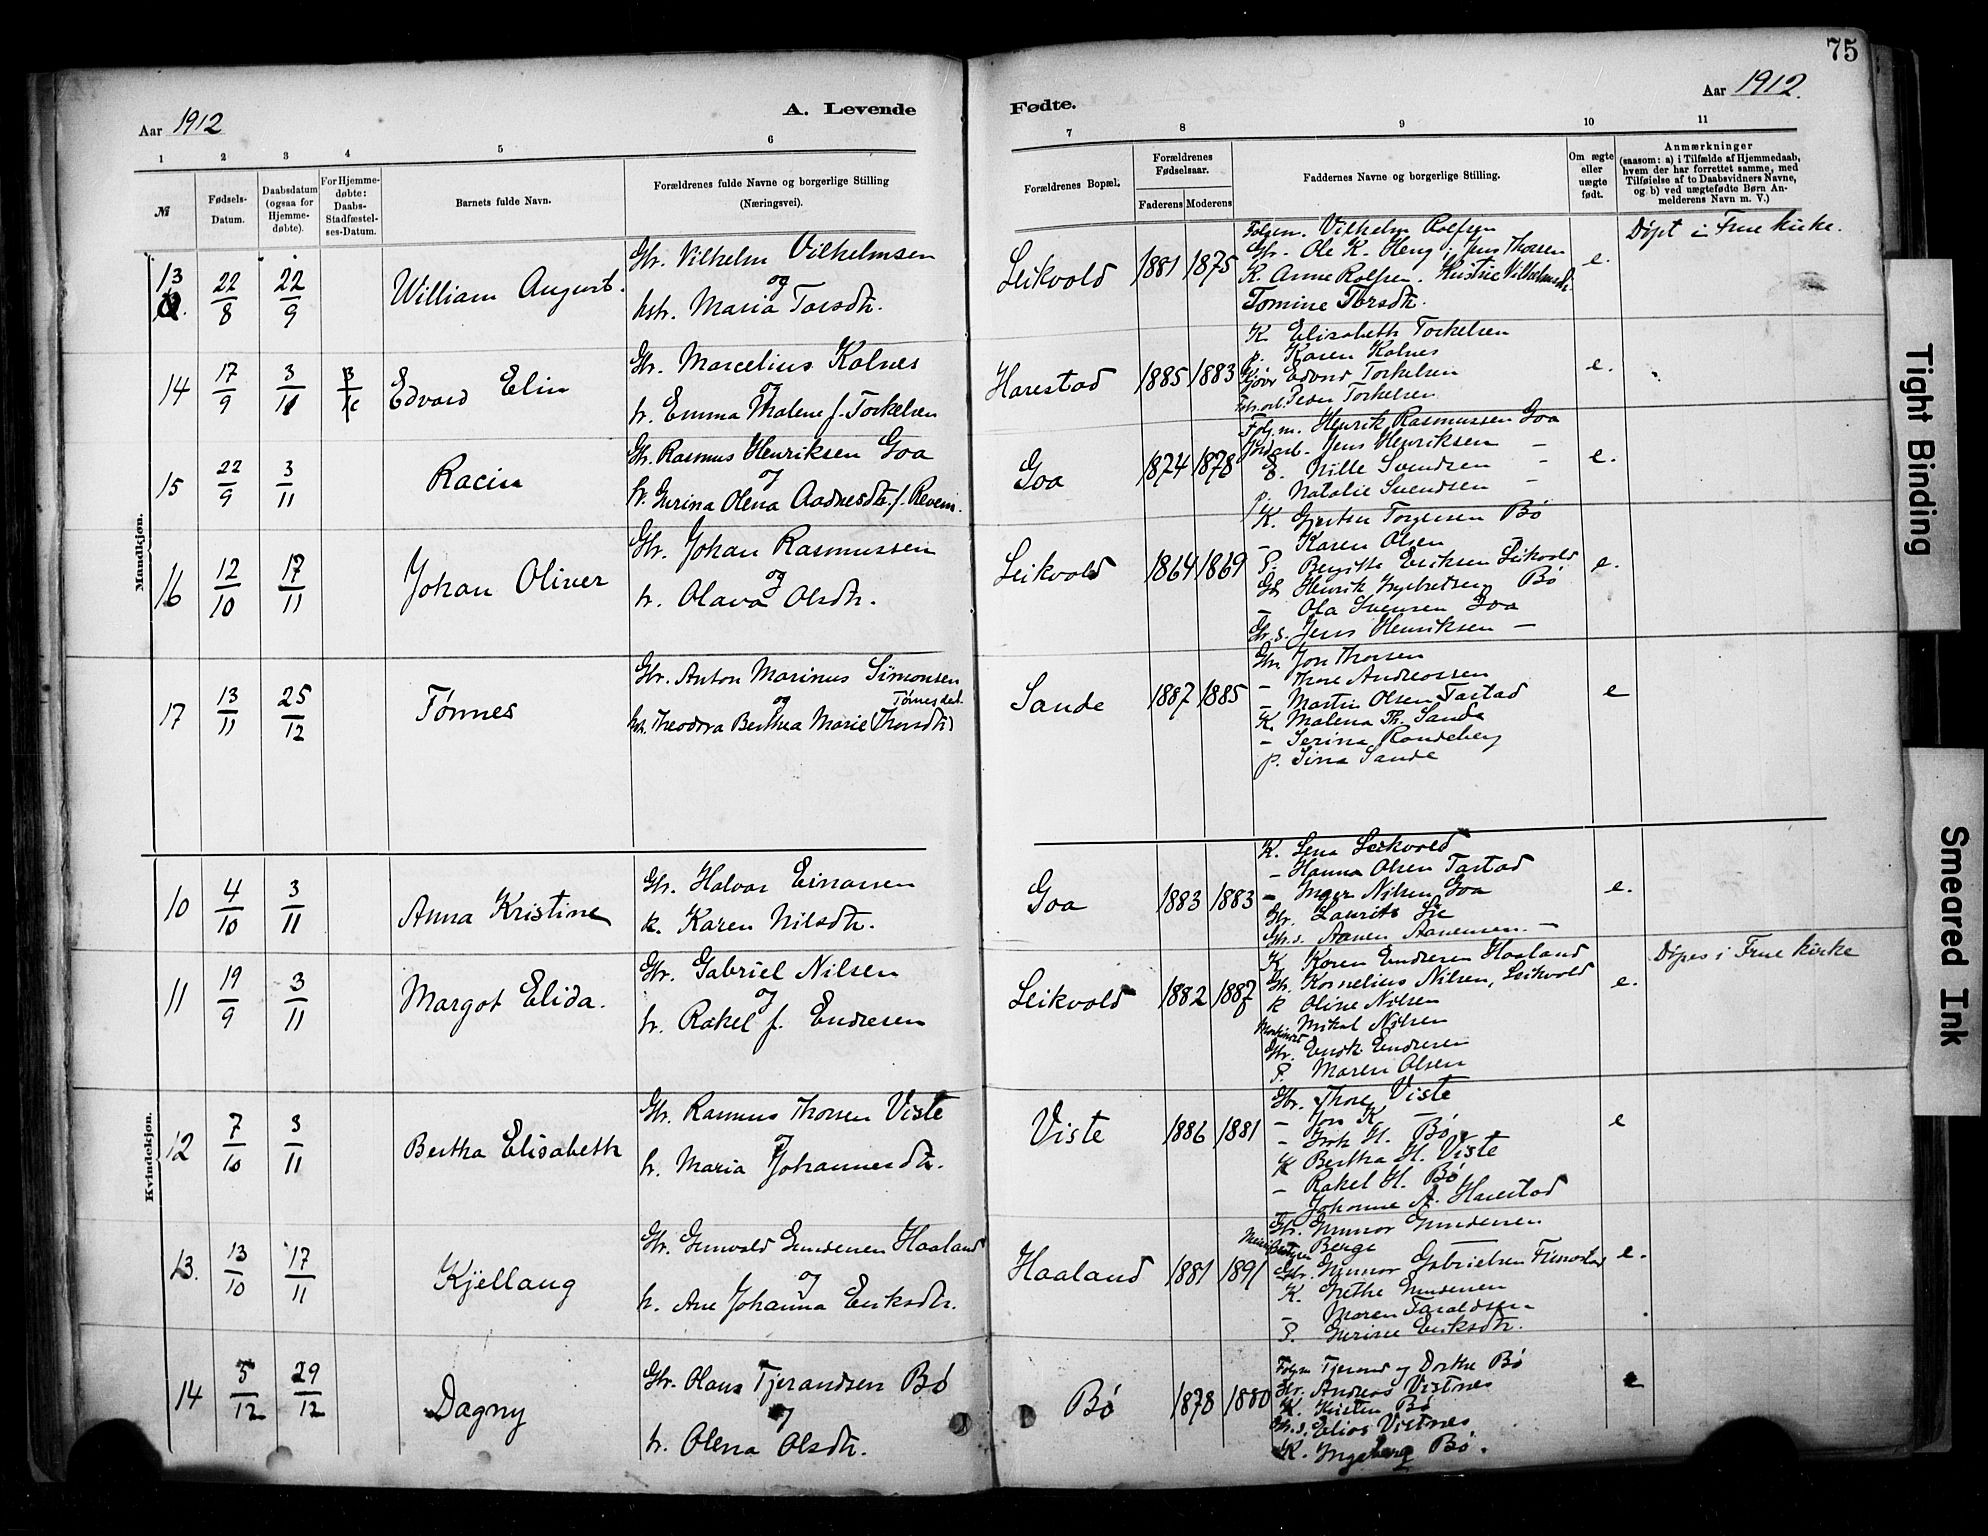 75
Aar 1912
A. Levende
Fødte.
Aar 1912.
1 2 3 4 5 6 7 8 9 10 11
№
Fødsels-Datum.
Daabsdatum (ogsaa for Hjemmedøbte).
For Hjemmedøbte: Daabs-Stadfæstelses-Datum.
Barnets fulde Navn.
Forældrenes fulde Navne og borgerlige Stilling (Næringsvei).
Forældrenes Bopæl.
Forældrenes Fødselsaar.
Faderens Moderens
Faddernes Navne og borgerlige Stilling.
Om ægte eller uægte født.
Anmærkninger
(saasom: a) i Tilfælde af Hjemmedaab, hvem der har forrettet samme, med Tilføielse af to Daabsvidners Navne, og b) ved uægtefødte Børn Anmelderens Navn m. V.)
Mandkjøn.
13
22/8 22/9
William August.
Gbr. Vilhelm Vilhelmsen
og
hstr. Maria Tarsdtr.
Leikvold
1881 1875
Vilhelm Rolfsen
Gbr. Ole K. Jens Thorsen
K. Anne Rolfsen.
Tomine Torsdtr.
e.
Døpt i Frue kirke.
14
17/9
Edvard Elin
Gbr. Marcelius Kalnes
og
h. Emma Malene f. Torkelsen
Harestad
1885 1883
K. Elisabeth Torkelsen
p. Karen Kalnes
Edvard Torkelsen
Peder Torkelsen
e.
15
22/9 3/11
Gbr. Rasmus Henriksen Goa
og
h. Gurina Olena Aadnesdtr. f.
Goa
1874 1878
Folgm. Henrik Rasmussen Goa
Jens Henriksen —
Nille Svendsen —
p. Natalie Svendsen —
e.
16
12/10 17/11
Johan Oliver
Gbr. Johan Rasmussen
og
h. Olava Olsdtr.
Leikvold
1864 1869
K. Torgersen Bø
— Karen Olsen
P. Eriksen Leikvold
Gb. Henrik Bø
— Ola Svensen Goa
Gbr. s. Jens Henriksen —
e.
17
13/11 25/12
Tønnes
Gbr. Anton Marinus Simonsen
og
Theodora Berthea Marie (Thorsdtr)
Sande
1887 1885
Gbr. Jon Thorsen
— Thore Andreassen
— Martin Olsen Tastad
K. Malena Th. Sande
— Serina Randeberg
p. Sina Sande
e
Kvindekjøn.
10
4/10 3/11
Anna Kristine
Gbr. Halvar Einarsen
k. Karen Nilsdtr.
Goa
1883 1883
K. Lena Leikvold
— Hanna Olsen Tastad
— Inger Nilsen Goa
Gbr. Laurits
Gbr. s. —
e.
11
19/9 3/11
Margot Elida.
Gbr. Gabriel Nilsen
og
h. Rakel f. Endresen
Leikvold
1882 1887
K. Karen Endresen Haaland
Gb. Kornelius Nilsen, Leikvold
k Oline Nilsen
Mikal Nilsen
Gbr. Endresen
P. Maren Olsen
e.
Døpes i Frue kirke
12
7/10 3/11
Bertha Elisabeth
Gbr. Rasmus Thorsen Viste
og
h. Maria Johannesdtr.
Viste
1886 1881
Gbr. Thore Viste
— Jon K. —
H. Bø
K Bertha H. Viste
— Rakel H. Bø
— Johanne A. Harestad
e
13.
13/10 17/11
Kjellaug
Gbr. Gunvald Gundersen Haaland
og
h. Ane Johanna Eriksdtr.
Haaland
1881 1891
Gbr. Gunnar Gundersen
Berge
Gbr. Gunnar Gabrielsen
K. Grethe Gundersen
— Maren Taraldsen
P. Gurine Eriksdtr.
e.
14
5/12 29/12
Dagny
Gbr. Olaus Tjerandsen Bø
og
h. Olena Olsdtr.
Bø
1878 1880
Folgm. Tjerand og Dorthe Bø
Gbr. Andreas Vistnes
K. Kirsten Bø
Gbr. s. Elias Vistnes
K. Ingeborg Bø.
e
Tight Binding
Smeared Ink